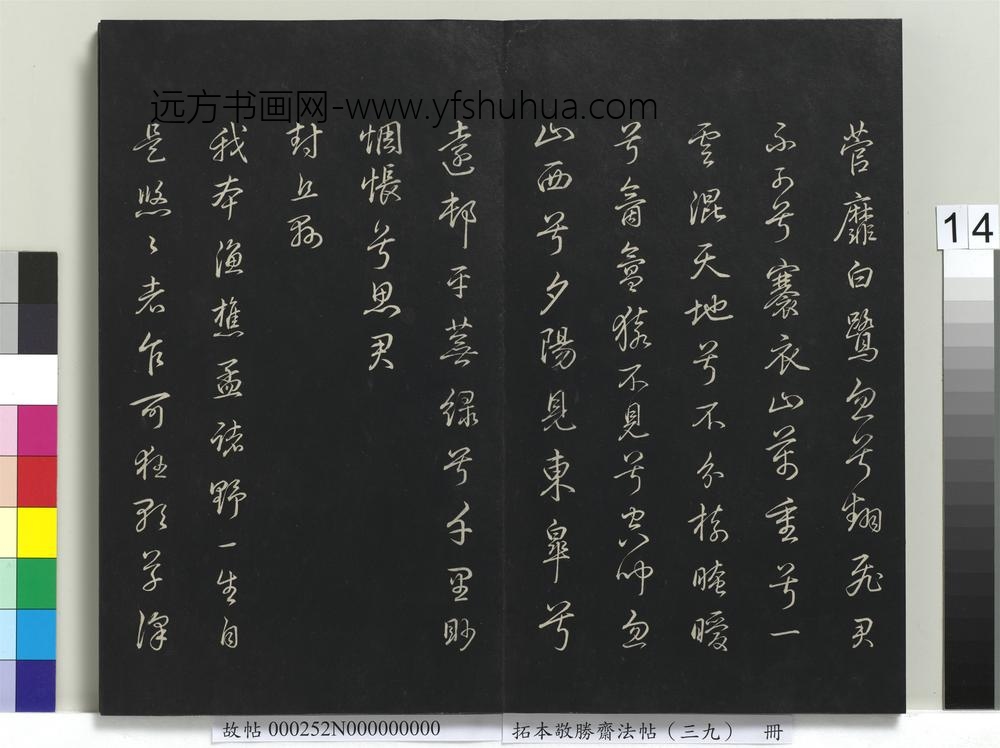 菅靡白鷺忽兮翻飛君
不可兮褰衣山萬重兮一
雲混天地兮不分樹晻曖
兮氤氳猿不見兮空聞忽
山西兮夕陽見東皐兮
遠邨平蕪綠兮千里眇
惆悵兮思君
封丘縣
我本漁樵孟諸野一生自
是悠〻者乍可狂歌草澤
远方书画网-www.yfshuhua.com
14
故帖 000252N000000000
拓本敬勝齋法帖（三九） 冊